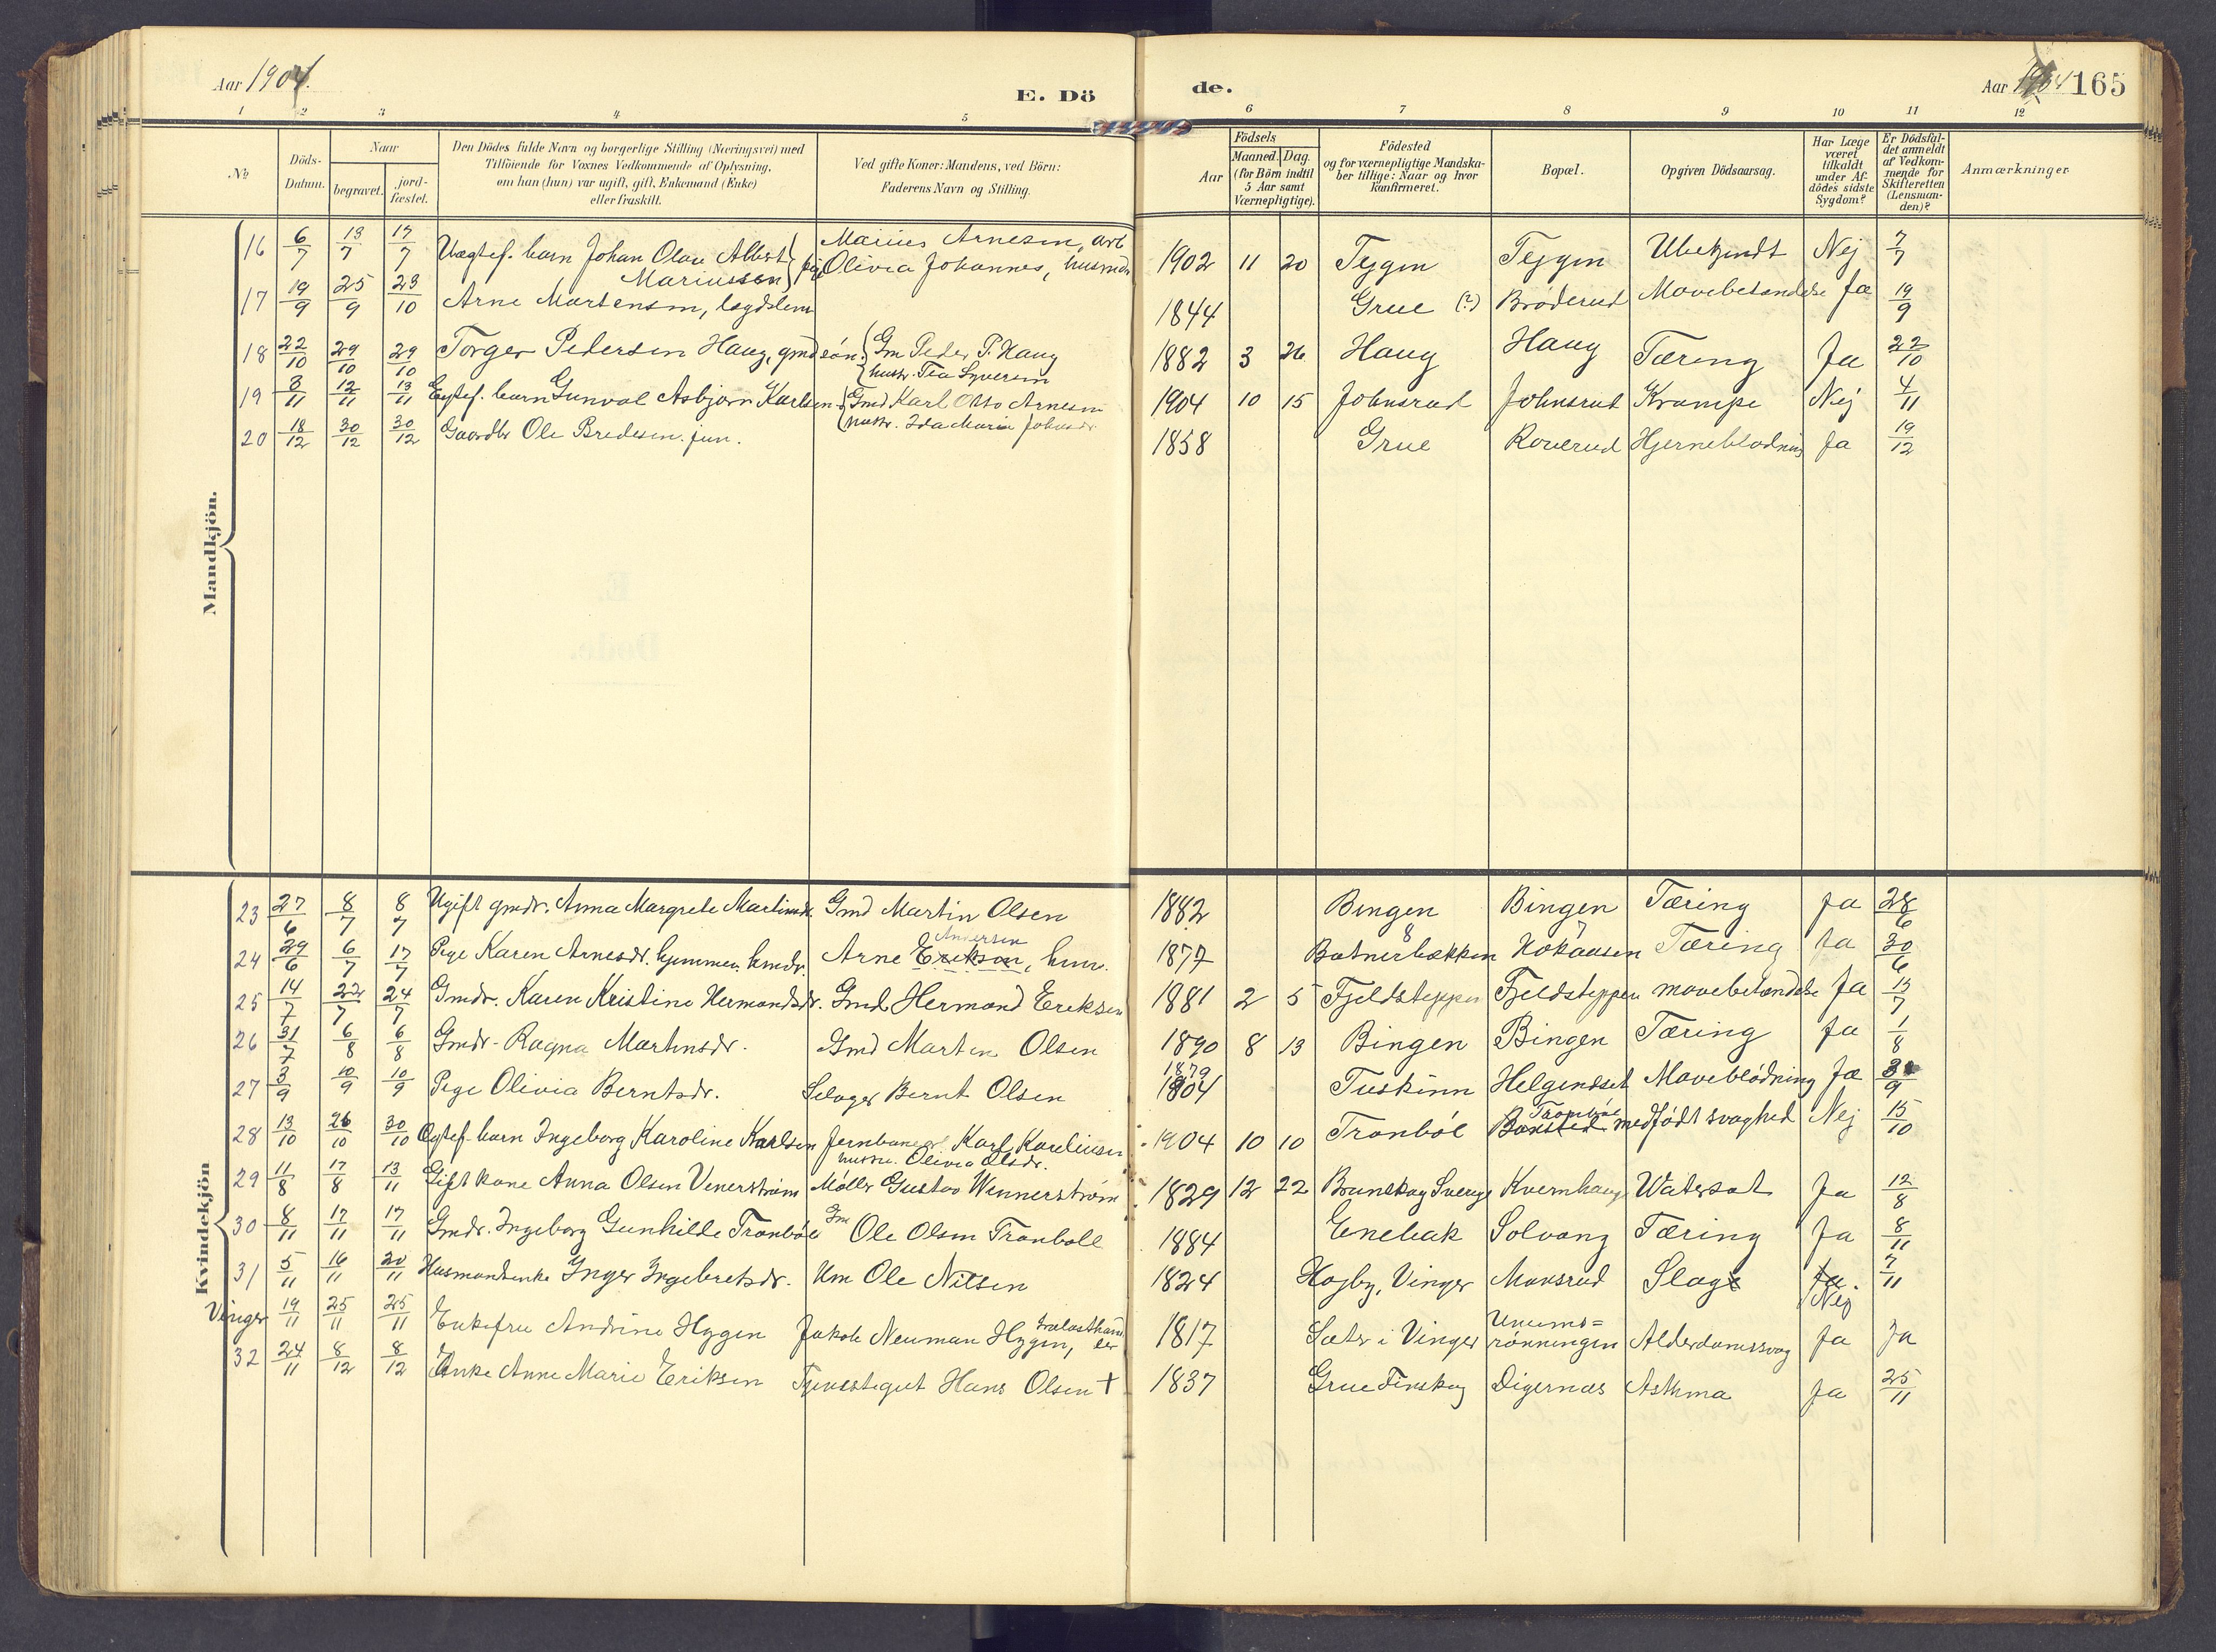 Aar 1904. E. Dö de. Aar 1904 165
1 2 3 4 5 6 7 8 9 10 11 12
№ Döds-Datum. Naar begravet. jord-fæstet. Den Dödes fulde Navn og borgerlige Stilling (Næringsvei) med Tilföiende for Voxnes Vedkommende af Oplysning, om han (hun) var ugift, gift, Enkemand (Enke) eller fraskilt. Ved gifte Koner: Mandens, ved Börn: Faderens Navn og Stilling. Aar Födsels Maaned. Dag. (for Börn indtil 5 Aar samt Værnepligtige). Födested og for værnepligtige Mandskaber tillige: Naar og hvor konfirmeret. Bopæl. Opgiven Dödsaarsag. Har Læge været tilkaldt under Afdödes sidste Sygdom? Er Dödsfaldet anmeldt af Vedkommende for Skifteretten (Lensmanden)? Anmærkninger
Mandkjön.
16 6/7 13/7 17/7 Uægtef. barn Johan Olav Albert Mariussen Marius Arnesen, arb Olivia Johannes, husmd 1902 11 20 Tyggen Tyggen Ubekjendt Nej 7/7
17 19/9 25/9 23/10 Arne Martensen, lægdslem 1844 Grue (?) Bröderud Mavebetændelse Ja 19/9
18 22/10 29/10 29/10 Torger Pedersen Haug, gmdsön. Gm Peder P. Haug hustr. Tea Syversen 1882 3 26 Haug Haug Tæring Ja 22/10
19 3/11 12/11 13/11 Egtef. barn Gunval Asbjørn Karlsen Gmd Karl Otto Arnesen hustr. Ida Marie Johnsdr 1904 10 15 Johnsrud Johnsrud Krampe Nej 4/11
20 18/12 30/12 30/12 Gaardbr Ole Bredesen jun. 1858 Grue Roverud Hjerneblødning Ja 19/12
Kvindekjön
23 27/6 8/7 8/7 Ugift gmdr. Anna Margrete Martinsdr. Gmd Martin Olsen 1882 Bingen Bingen Tæring Ja 28/6
24 29/6 6/7 17/7 Pige Karen Arnesdr. hjemmev. hmdr. Arne Erikson Andersen, hmv. 1877 Batnerbækken Hokaasen Tæring Ja 30/6
25 14/7 22/7 24/7 Gmdr. Karen Kristine Hermandsdr. Gmd Hermand Eriksen 1881 2 5 Fjeldsteppen Fjeldsteppen mavebetændelse Ja 15/7
26 31/7 6/8 6/8 Gmdr. Ragna Martinsdr. Gmd Martin Olsen 1890 8 13 Bingen Bingen Tæring Ja 1/8
27 3/9 10/9 10/9 Pige Olivia Berntsdr. Selvejer Bernt Olsen 1879 1904 Tuskinn Helgeneset Maveblödning Ja 3/9
28 13/10 26/10 30/10 Egtef. barn Ingeborg Karoline Karlsen Jernbanearb. Karl Karelinsen hustru. Olivia Olsdr. 1904 10 10 Tranböl Baxsted Tranböl medfödt svaghed Nej 15/10
29 11/8 17/8 13/11 Gift kone Anna Olsen Venerström Møller Gustav Wennerström 1829 12 22 Brunskog Sverige Kvernhaug Watersot Ja 12/8
30 8/11 17/11 17/11 Gmdr. Ingeborg Gunhilde Tranböl Gm Ole Olsen Tranböll 1884 Enebak Solvang Tæring Ja 8/11
31 5/11 16/11 20/11 Husmandsenke Inger Ingebretsdr. Um Ole Nilsen 1824 Høgby, Vinger Monsrud Slag Ja. Nej 7/11
Vinger 19/11 25/11 25/11 Enkefru Andrine Hyggen Jakob Neuman Hygen, trælasthandler 1817 Sæter i Vinger Unumsrönningen Alderdomssvag Ja Ja
32 24/11 8/12 8/12 Enke Anne Marie Eriksen Tjenestegut Hans Olsen + 1837 Grue Finskog Digernæs Asthma Ja 25/11